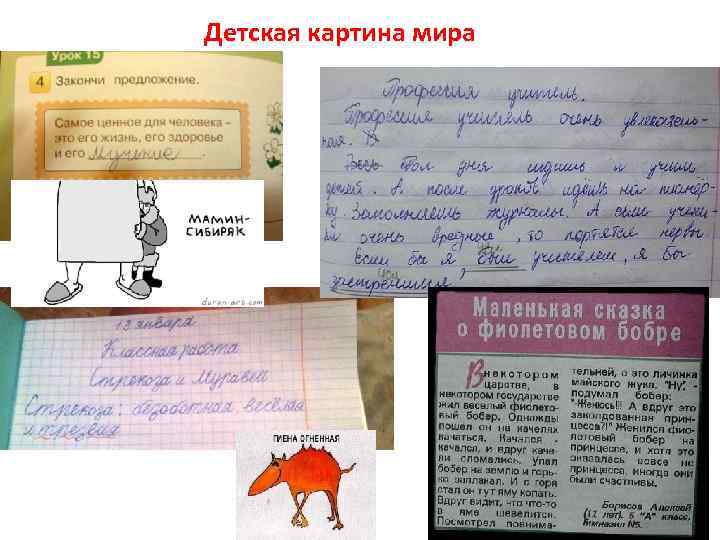 Детская картина мира
Урок 15
4 Закончи предложение.
Самое ценное для человека –
это его жизнь, его здоровье
и его Мучение.
МАМИН-
СИБИРЯК
duran-art.com
Профессия учитель.
Профессия учитель очень увлекатель-
ная. В
Весь Пол дня сидишь и учишь
детей. А после уроков идёшь на планёр-
ку. Заполняешь журналы. А если учени-
ки очень вредные, то портятся нервы
Если бы я был учителем, я бы
застрелился
13 января
Классная работа
Стрекоза и Муравей
Стрекоза: безоботная весёлая
и трезвая
ГИЕНА ОГНЕННАЯ
Маленькая сказка
о фиолетовом бобре
В некотором
царстве, в
некотором государстве
жил веселый фиолето-
вый бобер. Однажды
пошел он на качелях
качаться. Качался -
качался, и вдруг каче-
ли сломались. Упал
бобер на землю и горь-
ко заплакал. И с горя
стал он тут яму копать.
Вдруг видит, что что-то
в яме шевелится.
Посмотрел повнима-
тельней, а это личинка
майского жука. "Ну", -
подумал бобер: -
"Женюсь!!! А вдруг это
заколдованная прин-
цесса?!" Женился фио-
летовый бобер на
принцессе, и хотя это
оказалась вовсе не
принцесса, иногда они
были счастливы.
Борисов Алексей
(11 лет). 5 "А" класс.
Гимназия №5.